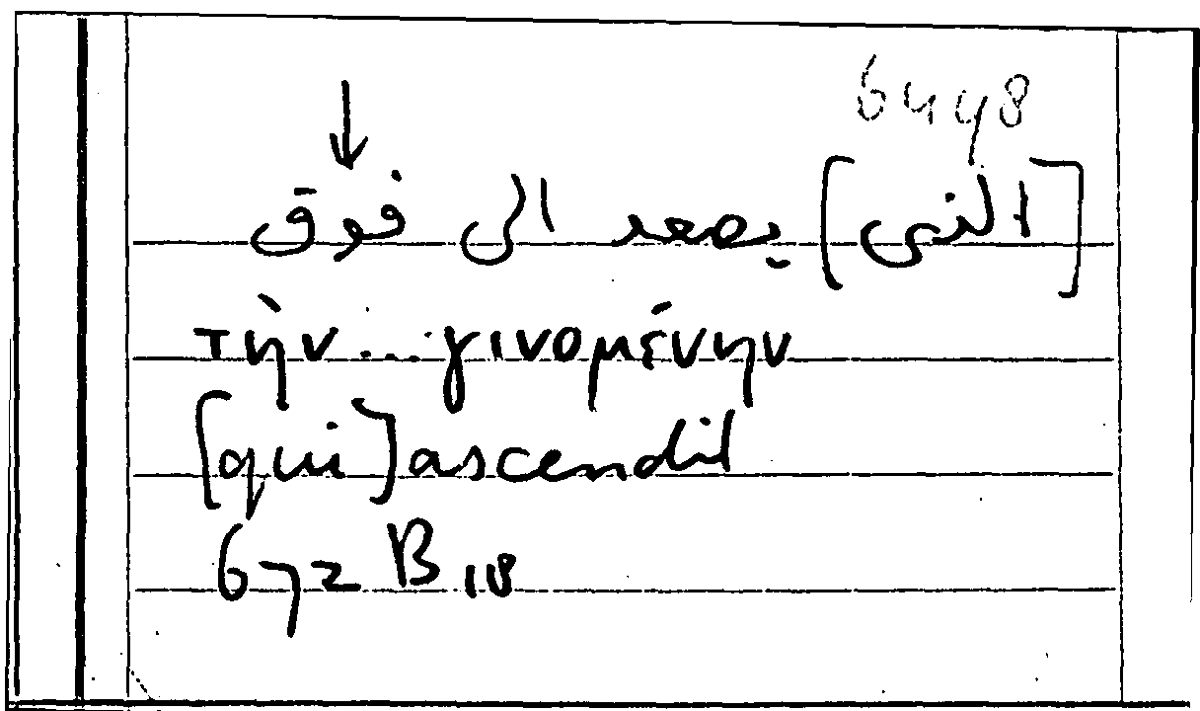 6448
↓
[الذي] يصعد الى فوق
τὴν... γινομένην
[qui] ascendit
672 B 18